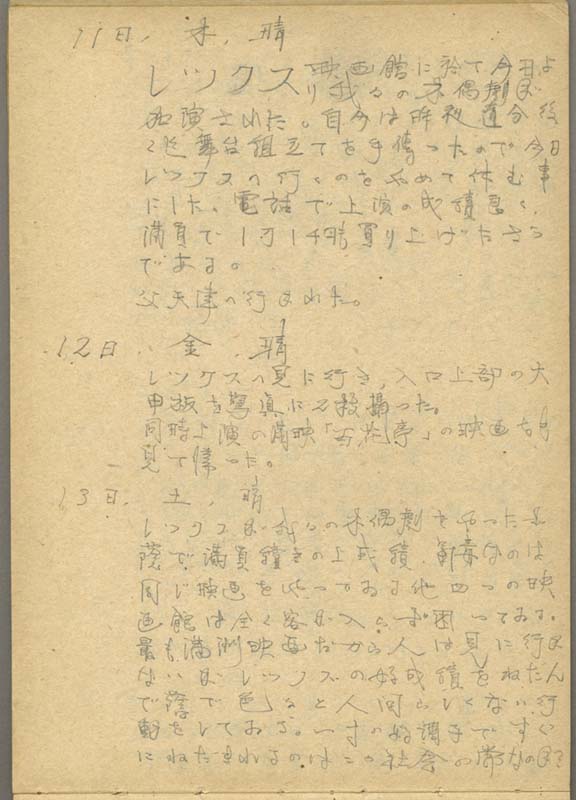 11日. 木. 晴
レックス映画館に於て今日よ
り我々の木偶劇が
公演された。自分は昨夜遅く
迄舞台組立てを手傳ったので今日
レックスへ行くのをやめて休む事
にした。電話で上演の成績を聞く、
満員で1万1千 賣り上げたさう
である。
父天津へ行かれた。
12日. 金. 晴
レックスへ見に行き、入口上部の大
看板を寫真に2枚撮った。
同時上演の満映「百花亭」の映画を
見て帰った。
13日. 土. 晴
レックスが我々の木偶劇をやったお
蔭で満員續きの上成績、
同じ映画を使ってゐる他四つの映
画館は全く客が入らず困ってゐる。
最も満洲映画だから人は見に行か
ないが、レックスの好成績をねたん
で蔭で色々と人間らしくない行
動をしてゐる。一寸の好調子ですぐ
にねたまれるのはこの社会の常なの